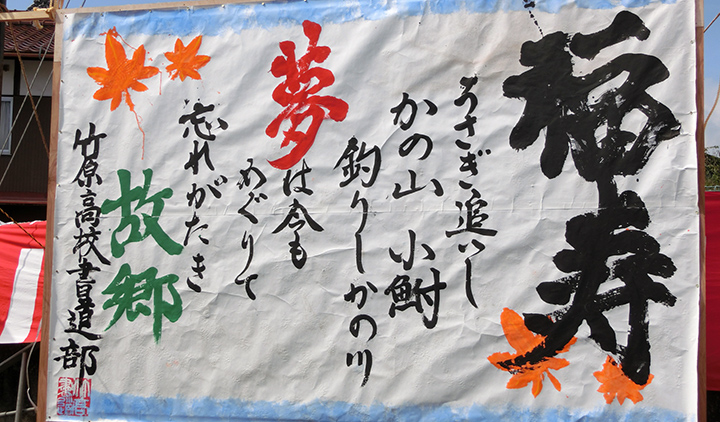 福寿
うさぎ追いし
かの山 小鮒
釣りしかの川
夢は今も
めぐりて
忘れがたき
故郷
竹原高校書道部